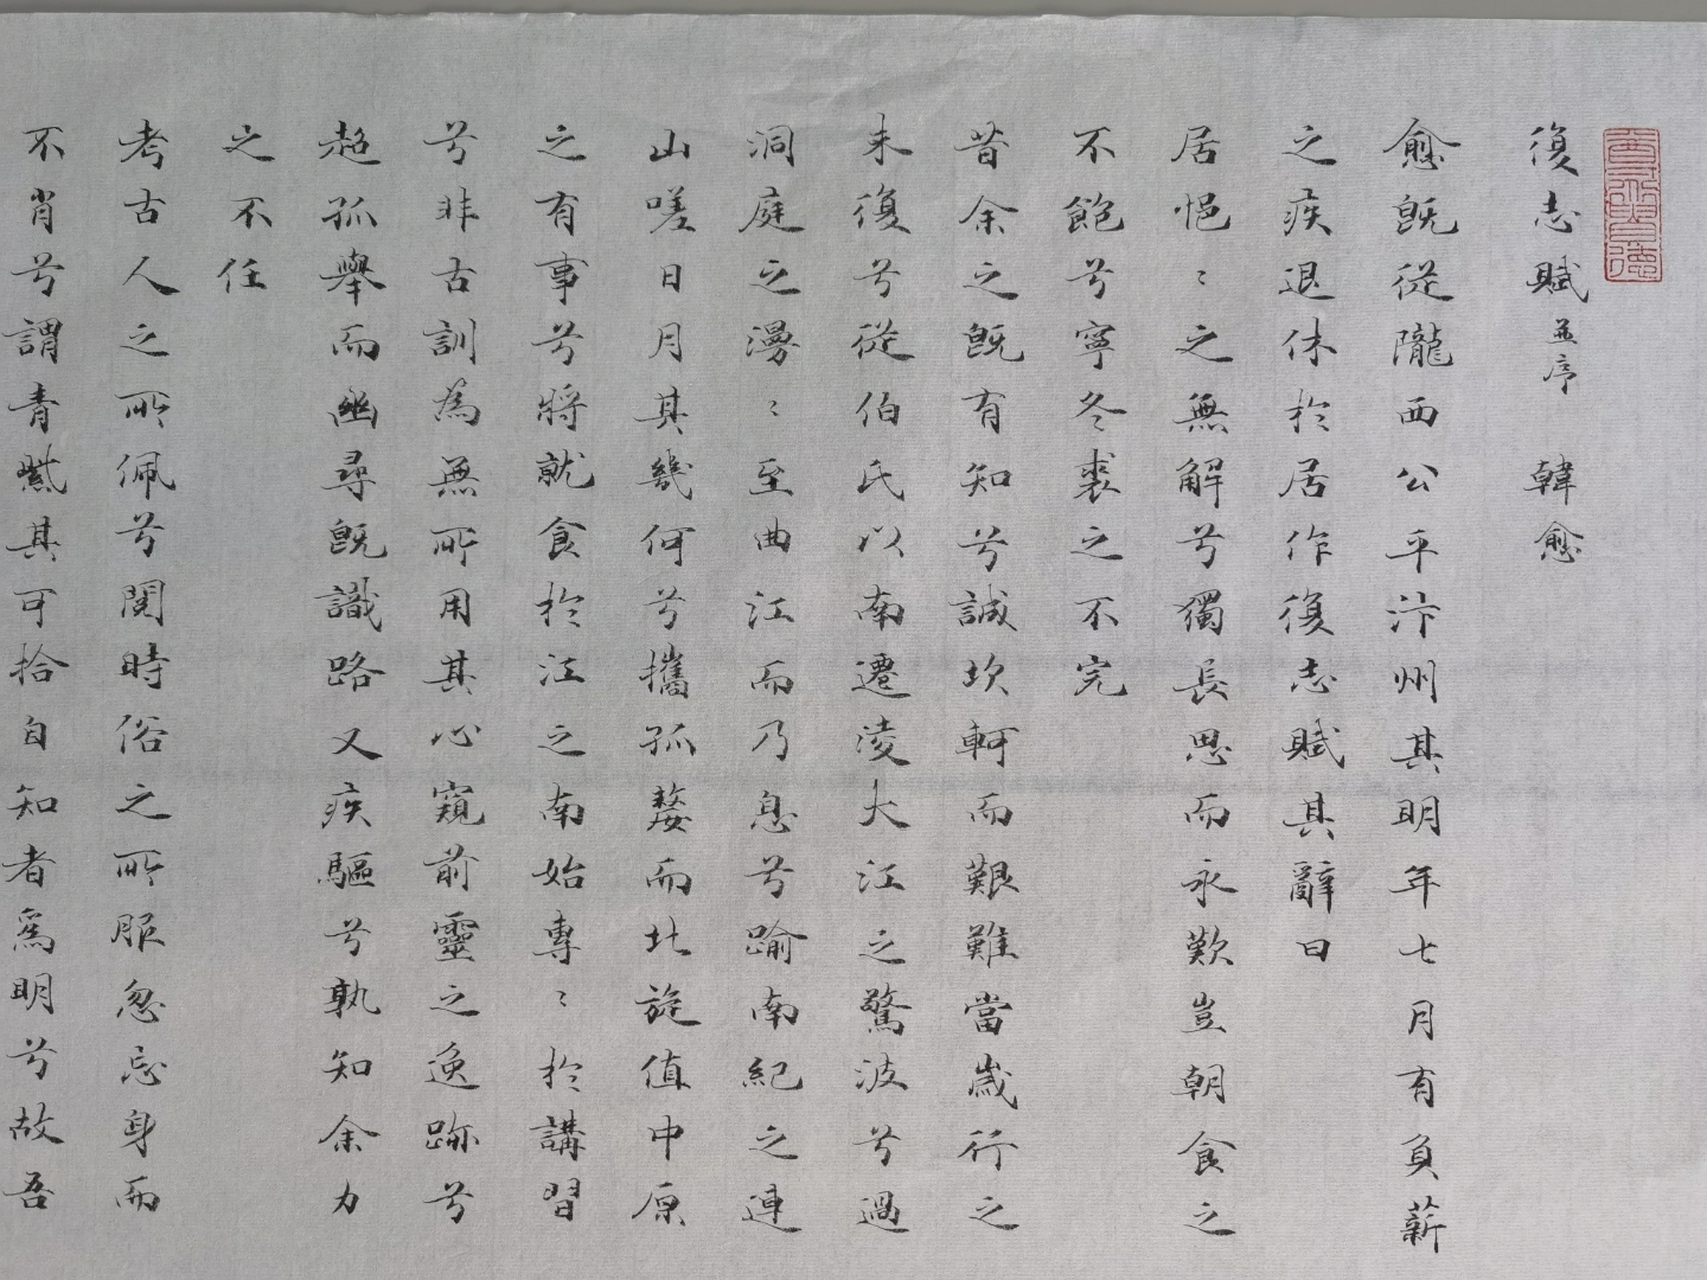 復志賦並序 韓愈
愈既從隴西公平汴州其明年七月有負薪
之疾退休於居作復志賦其辭曰
居悒〻之無解兮獨長思而永歎豈朝食之
不飽兮寧冬裘之不完
昔余之既有知兮誠坎軻而艱難當歲行之
未復兮從伯氏以南遷淩大江之驚波兮過
洞庭之漫〻至曲江而乃息兮踰南紀之連
山嗟日月其幾何兮攜孤嫠而北旋值中原
之有事兮將就食於江之南始專〻於講習
兮非古訓為無所用其心窺前靈之逸跡兮
超孤舉而幽尋既識路又疾驅兮孰知余力
之不任
考古人之所佩兮閱時俗之所服忽忘身而
不肖兮謂青紫其可拾自知者為明兮故吾